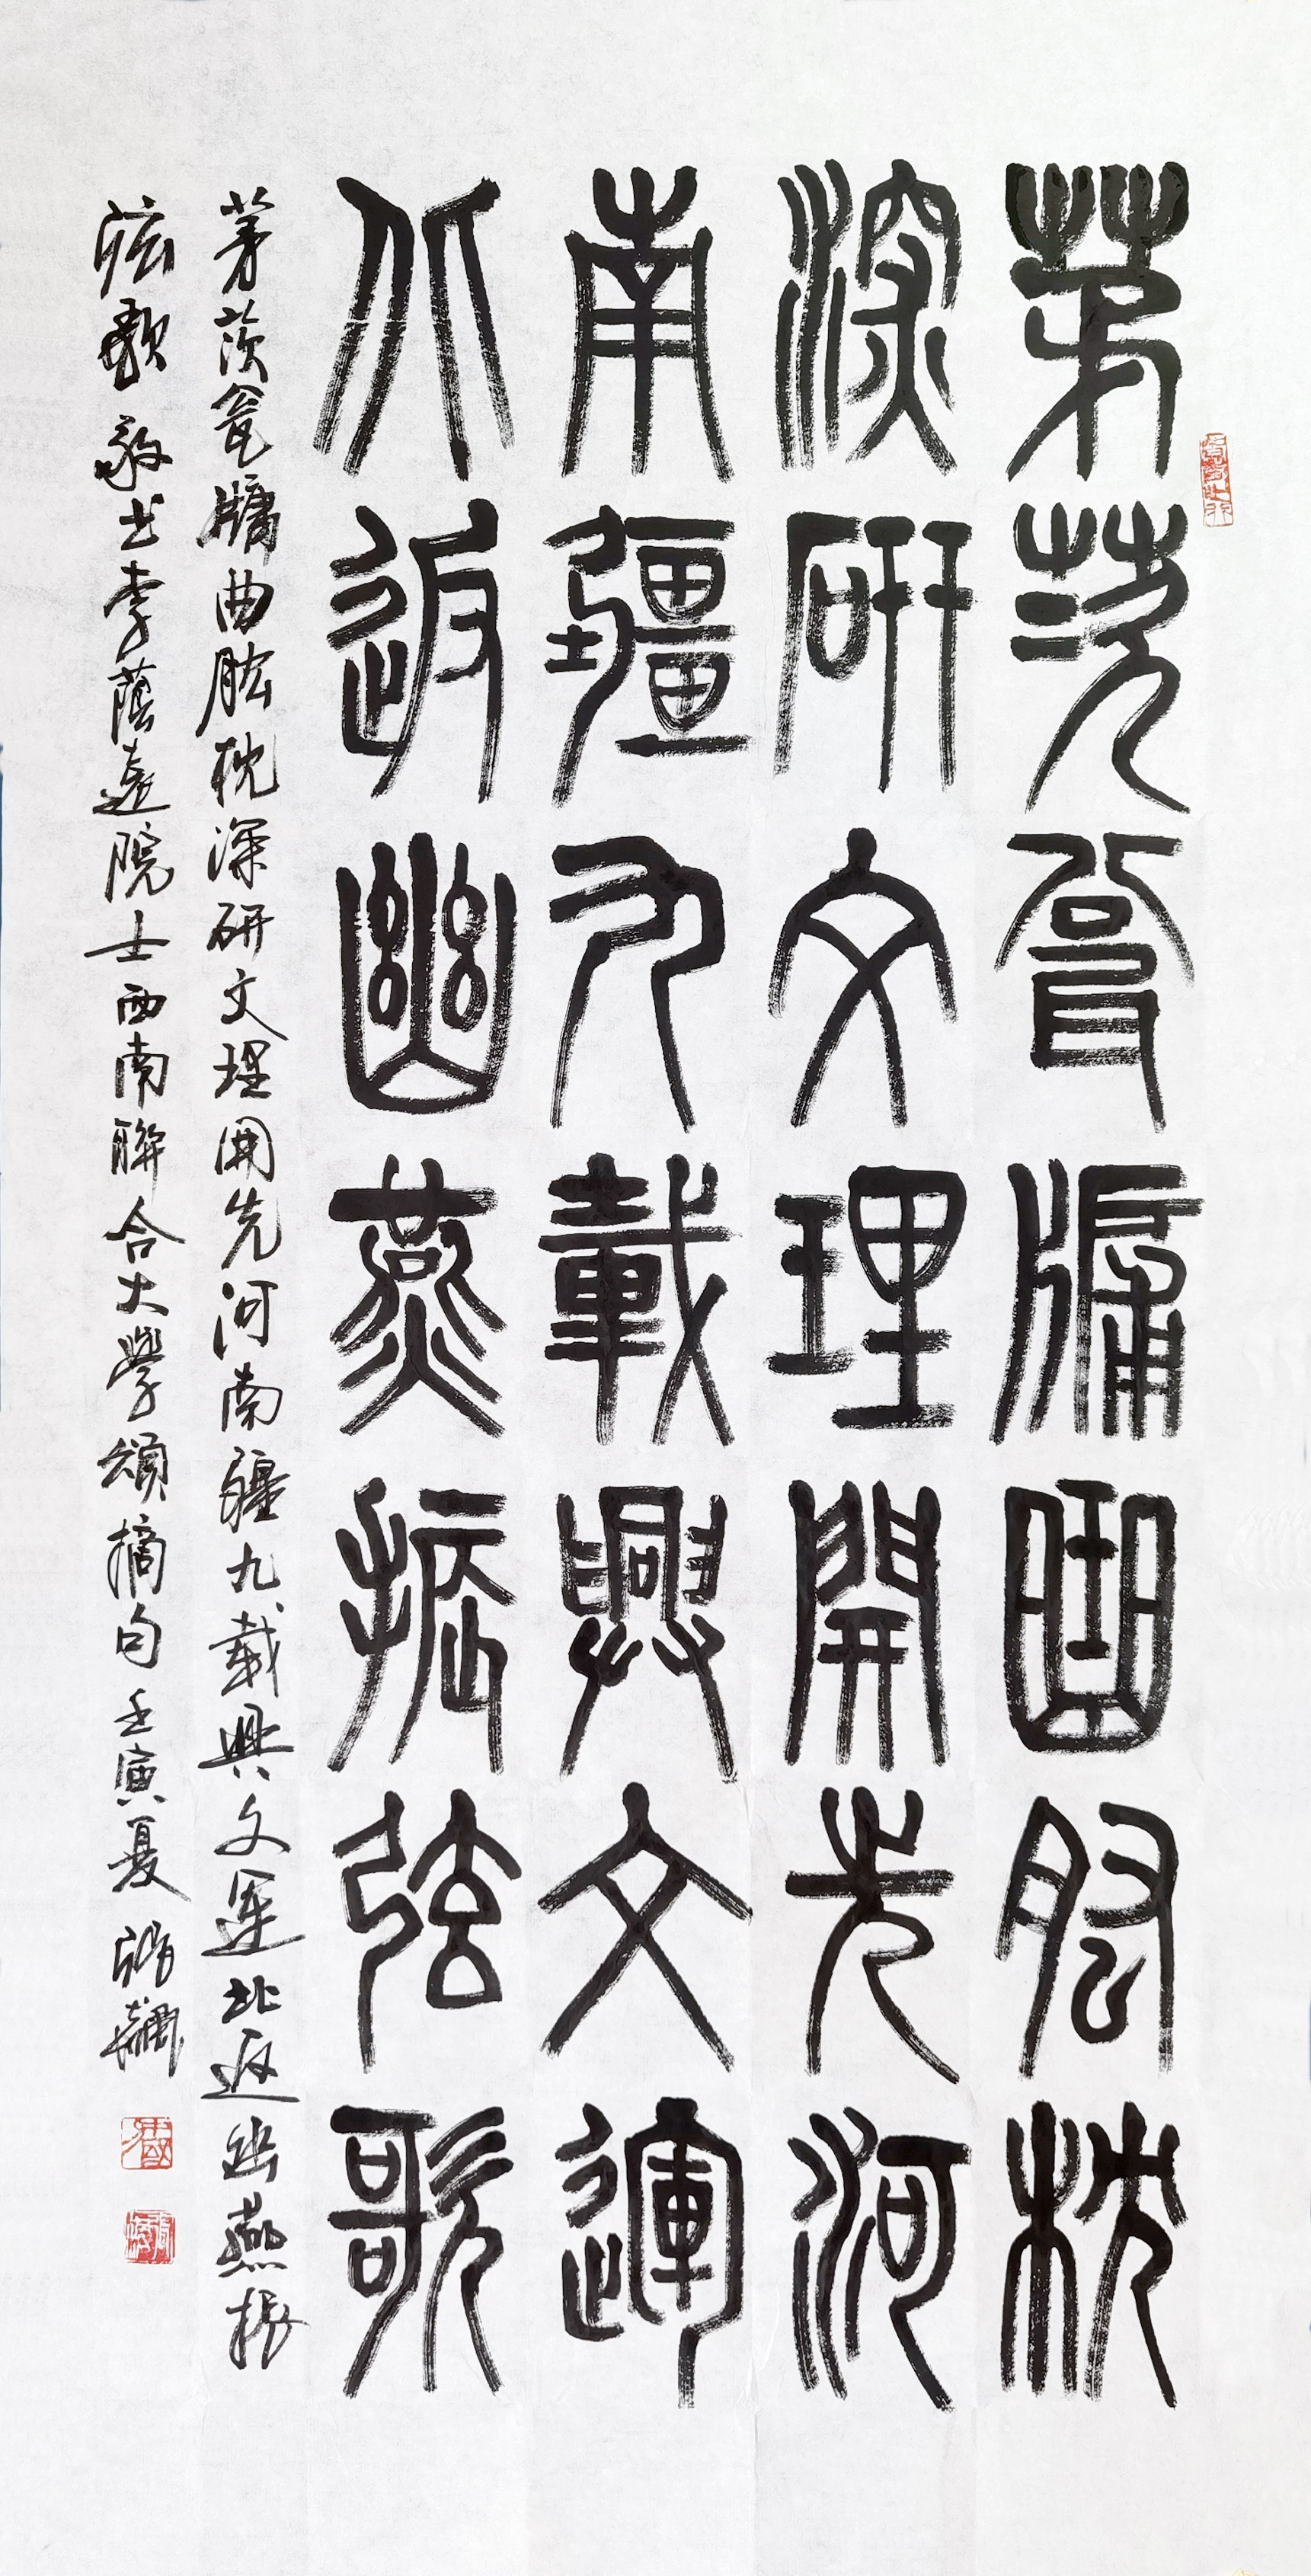 茅茨瓮牖曲肱枕
深研文理開先河
南疆九載興文運
北返幽燕振弦歌
茅茨瓮牖曲肱枕深研文理開先河南疆九載興文運北返幽燕振
弦歌敬书李蔭遠院士西南聯合大學頌摘句壬寅夏